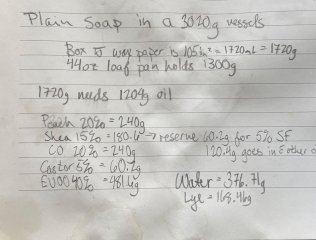 Plain Soap in a 3020g vessels
Box w/ wax paper is 105in³ = 1720mL = 1720g
44oz loaf pan holds 1300g
1720g needs 1204g oil
Peach 20% = 240g
Shea 15% = 180.6 → reserve 60.2g for 5% SF
CO 20% = 240g
120.4g goes in č other o
Castor 5% = 60.2g
EVOO 40% = 481.6g
Water = 376.71g
Lye = 168.46g